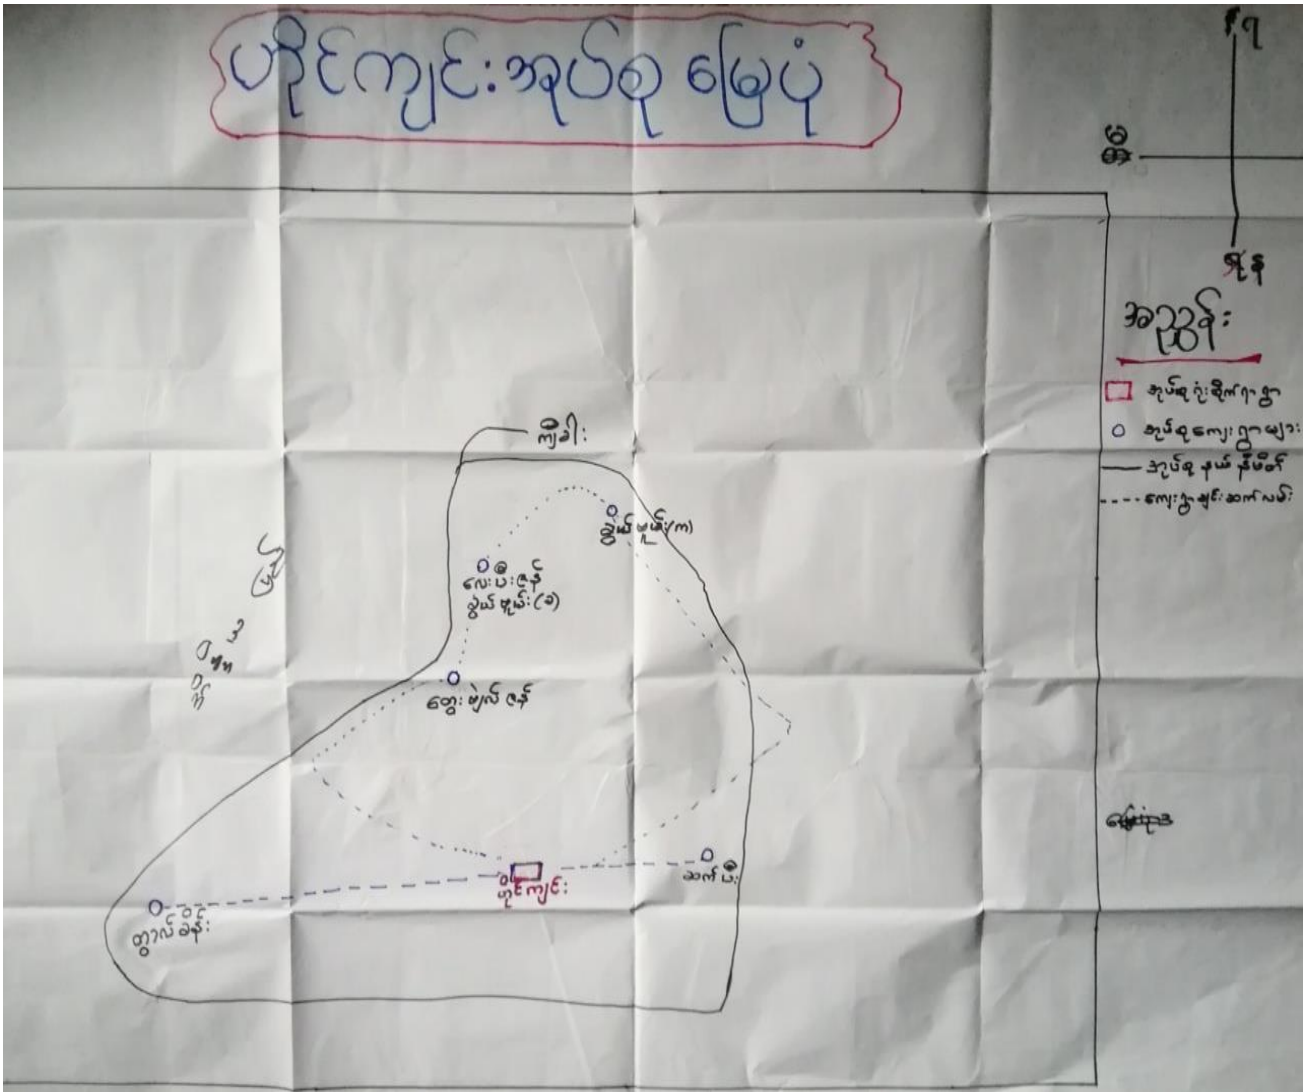 ဟိုင်ကျင်းအုပ်စု မြေပုံ
အညွှန်း
အုပ်စုရုံးစိုက်ရာရွာ
အုပ်စုကျေးရွာများ
အုပ်စု နယ်နိမိတ်
ကျေးရွာချင်းဆက်လမ်း
ကျီခါး
လွယ်မူယ်း(က)
လေးပီးဇန်
လွယ်မူယ်း(ခ)
တွေးမျဲလ်ဇန်
ဟိုင်ကျင်း
ဆက်ပီး
တွာလ်ခိန်း